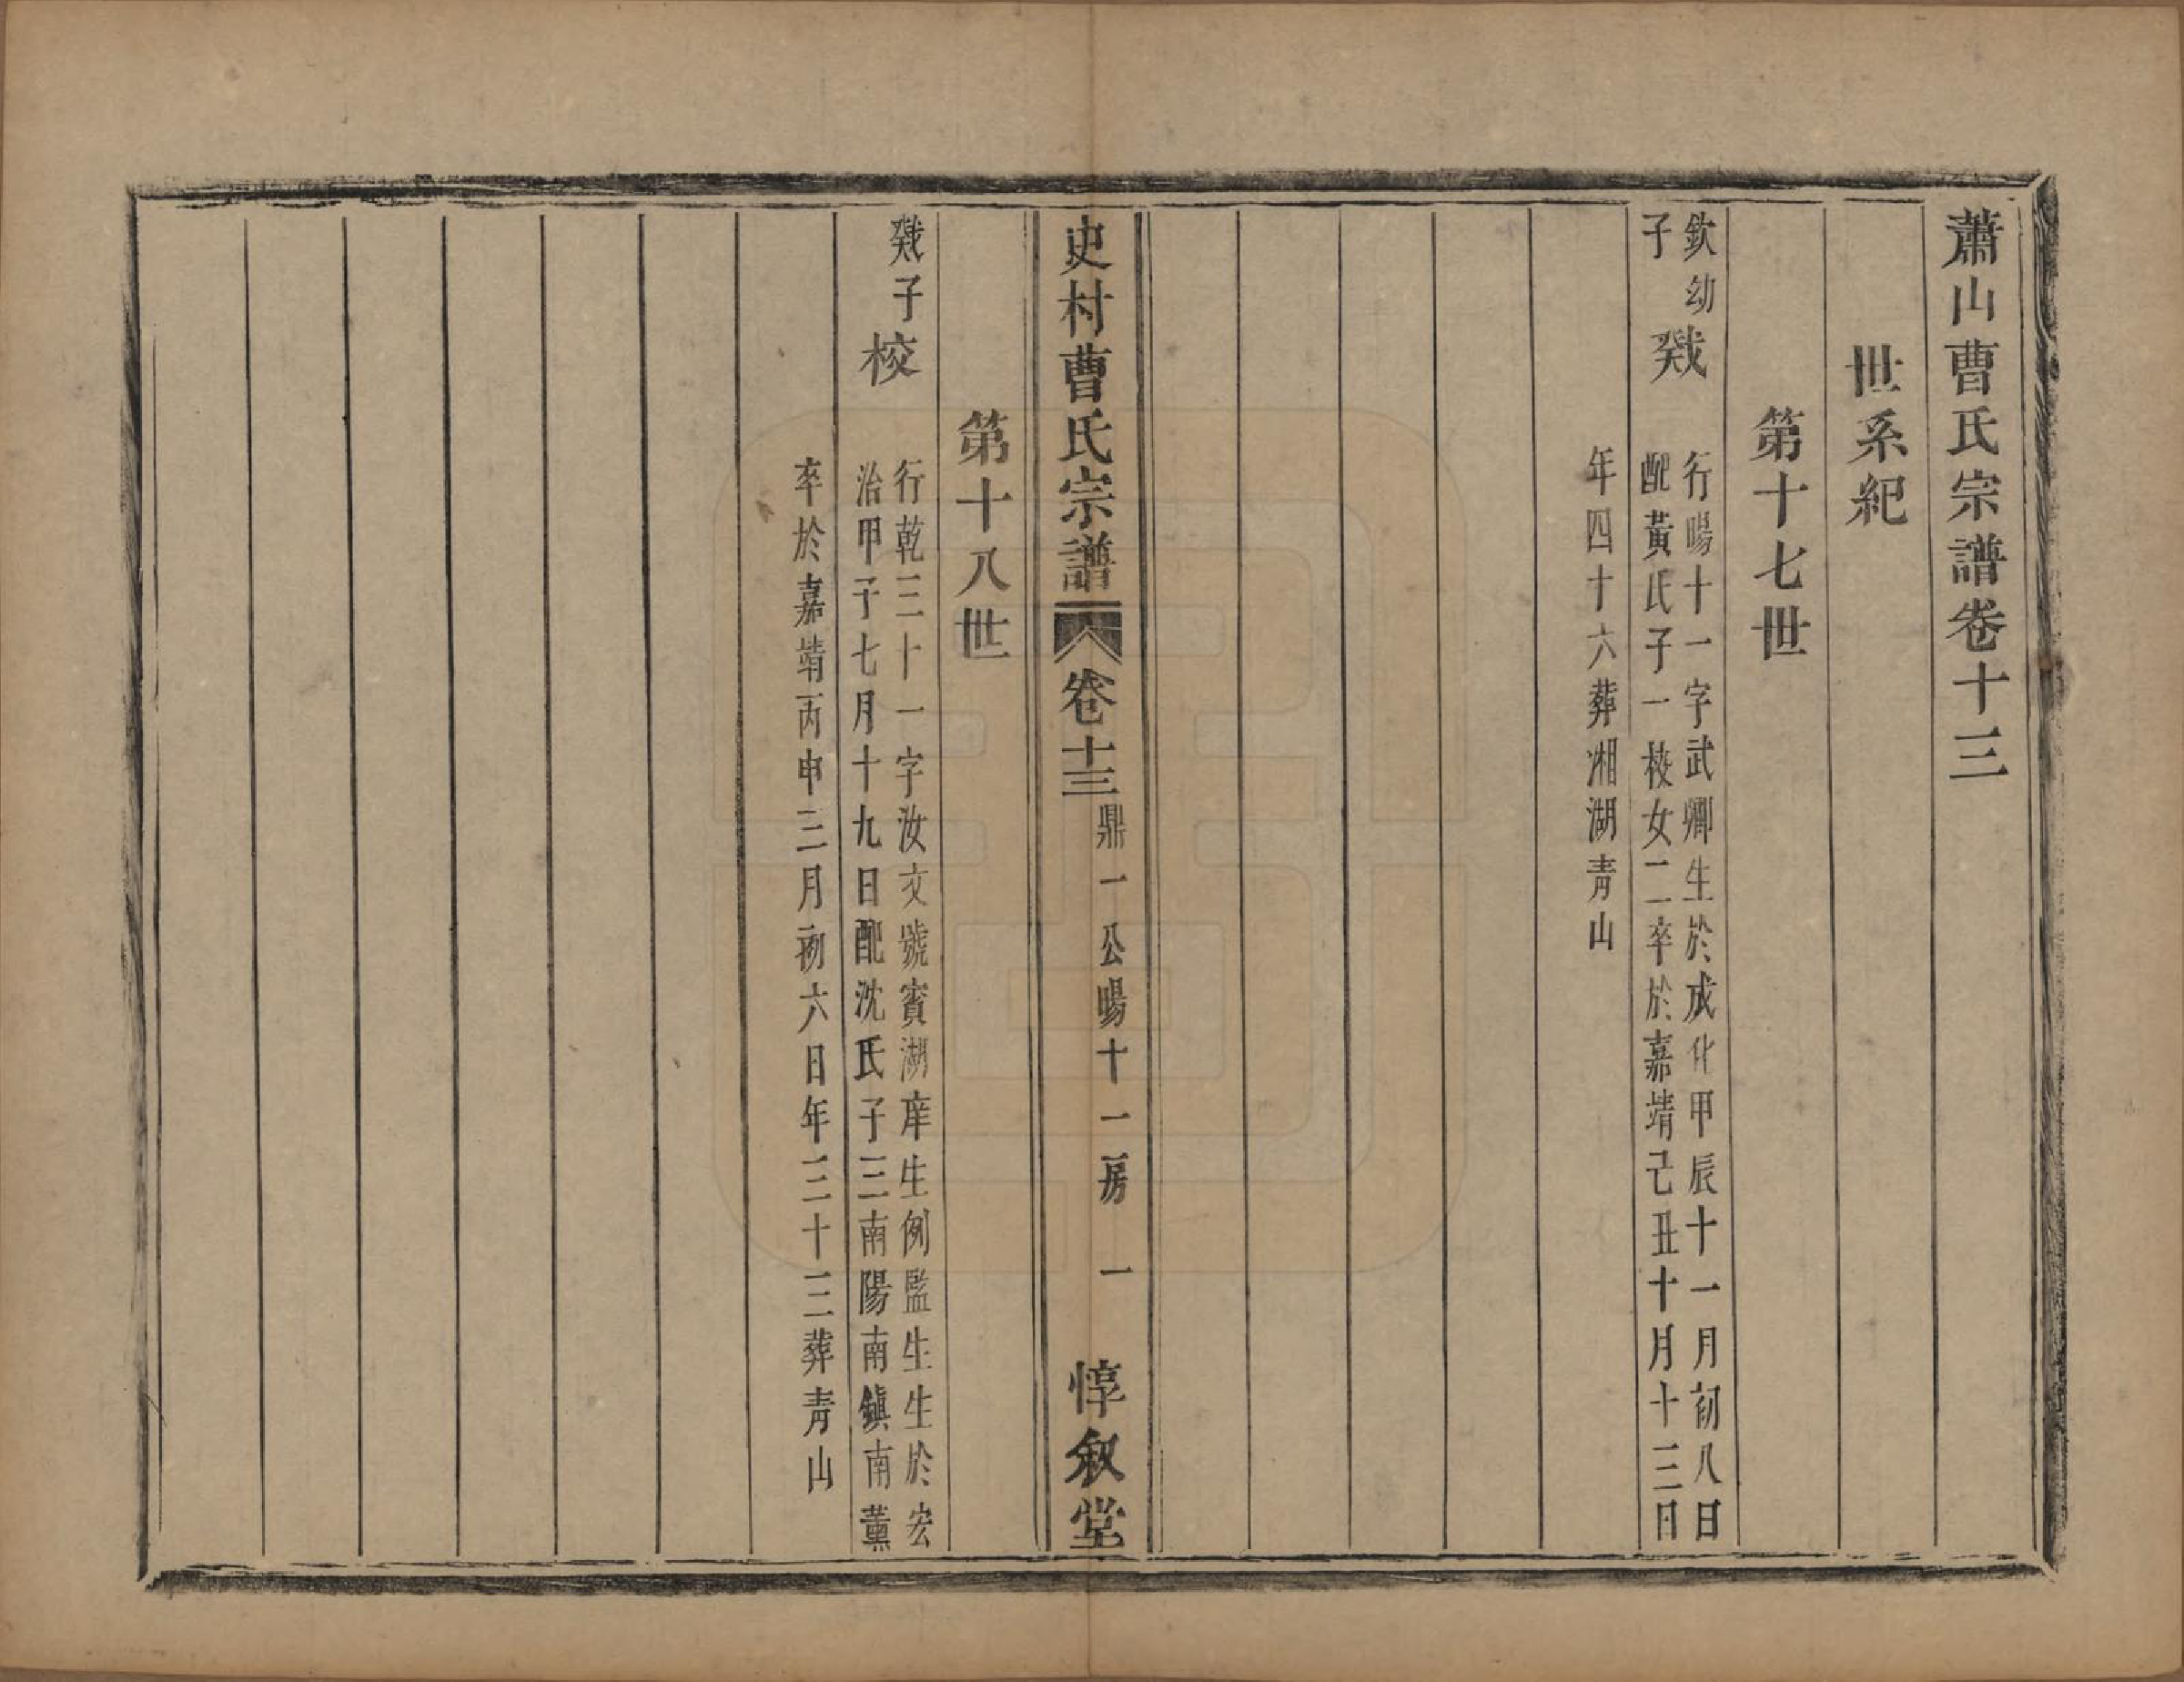 蕭山曹氏宗譜卷十三
世系紀
第十七世
欽幼
子
戣
行暘十一字武卿生於成化甲辰十一月初八日
配黃氏子一校女二卒於嘉靖己丑十月十三日
年四十六葬湘湖青山
史村曹氏宗譜 卷十三 鼎一公暘十一房 一 惇叙堂
第十八世
戣子
校
行乾三十一字汝文號賓湖庠生例監生生於宏
治甲子七月十九日配沈氏子三南陽南鎮南薰
卒於嘉靖丙申三月初六日年三十三葬青山